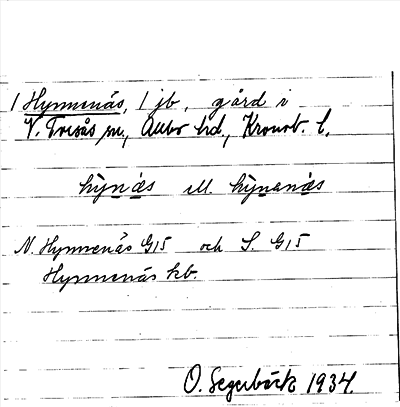 1 Hynnenäs, 1 jb, gård i
V. Torsås sn., Allbo hd., Kronob. l.
hỳnä̀s ell. hỳnanä̀s
N. Hynnenäs G15 och S. G15
Hynnenäs hb.
O. Segerbäck 1934.